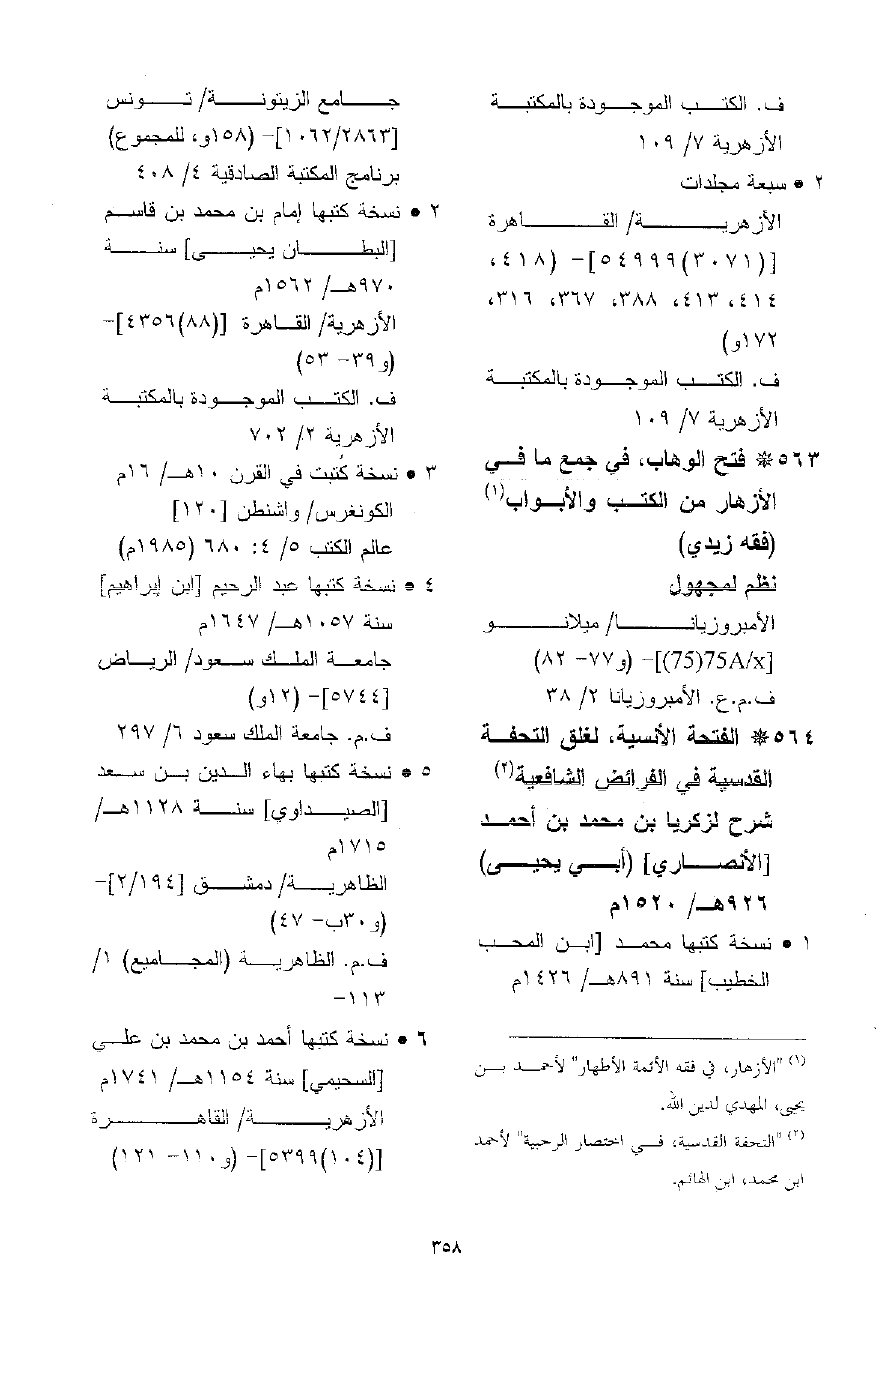 ف. الكتب الموجودة بالمكتبة
الأزهرية ٧/ ١٠٩
٢ • سبعة مجلدات
الأزهرية/ القاهرة
[(٣٠٧١)٥٤٩٩٩]– (٤١٨،
٤١٤، ٤١٣، ٣٨٨، ٣٦٧، ٣١٦،
١٧٢و)
ف. الكتب الموجودة بالمكتبة
الأزهرية ٧/ ١٠٩
٥٦٣ * فتح الوهاب، في جمع ما في
الأزهار من الكتب والأبواب(١)
(فقه زيدي)
نظم لمجهول
الأمبروزيانا/ ميلانو
[75A/x(75)]– (و٧٧– ٨٢)
ف.م.ع. الأمبروزيانا ٢/ ٣٨
٥٦٤ * الفتحة الأنسية، لغلق التحفة
القدسية في الفرائض الشافعية(٢)
شرح لزكريا بن محمد بن أحمد
[الأنصاري] (أبي يحيى)
٩٢٦هـ/ ١٥٢٠م
١ • نسخة كتبها محمد [ابن المحب
الخطيب] سنة ٨٩١هـ/ ١٤٢٦م
(١) "الأزهار، في فقه الأئمة الأطهار" لأحمد بن
يحيى، المهدي لدين الله.
(٢) "التحفة القدسية، في اختصار الرحبية" لأحمد
ابن محمد، ابن الهائم.
جامع الزيتونة/ تونس
[١٠٦٢/٢٨٦٣]– (١٥٨و، للمجموع)
برنامج المكتبة الصادقية ٤/ ٤٠٨
٢ • نسخة كتبها إمام بن محمد بن قاسم
[البطان يحيى] سنة
٩٧٠هـ/ ١٥٦٢م
الأزهرية/ القاهرة [(٨٨)٤٣٥٦]–
(و٣٩– ٥٣)
ف. الكتب الموجودة بالمكتبة
الأزهرية ٢/ ٧٠٢
٣ • نسخة كُتبت في القرن ١٠هـ/ ١٦م
الكونغرس/ واشنطن [١٢٠]
عالم الكتب ٥/ ٤: ٦٨٠ (١٩٨٥م)
٤ • نسخة كتبها عبد الرحيم [ابن إبراهيم]
سنة ١٠٥٧هـ/ ١٦٤٧م
جامعة الملك سعود/ الرياض
[٥٧٤٤]– (١٢و)
ف.م. جامعة الملك سعود ٦/ ٢٩٧
٥ • نسخة كتبها بهاء الدين بن سعد
[الصيداوي] سنة ١١٢٨هـ/
١٧١٥م
الظاهرية/ دمشق [٢/١٩٤]–
(و٣٠ب– ٤٧)
ف.م. الظاهرية (المجاميع) ١/
١١٣–
٦ • نسخة كتبها أحمد بن محمد بن علي
[السحيمي] سنة ١١٥٤هـ/ ١٧٤١م
الأزهرية/ القاهرة
[(١٠٤)٥٣٩٩]– (و١١٠– ١٢١)
٣٥٨